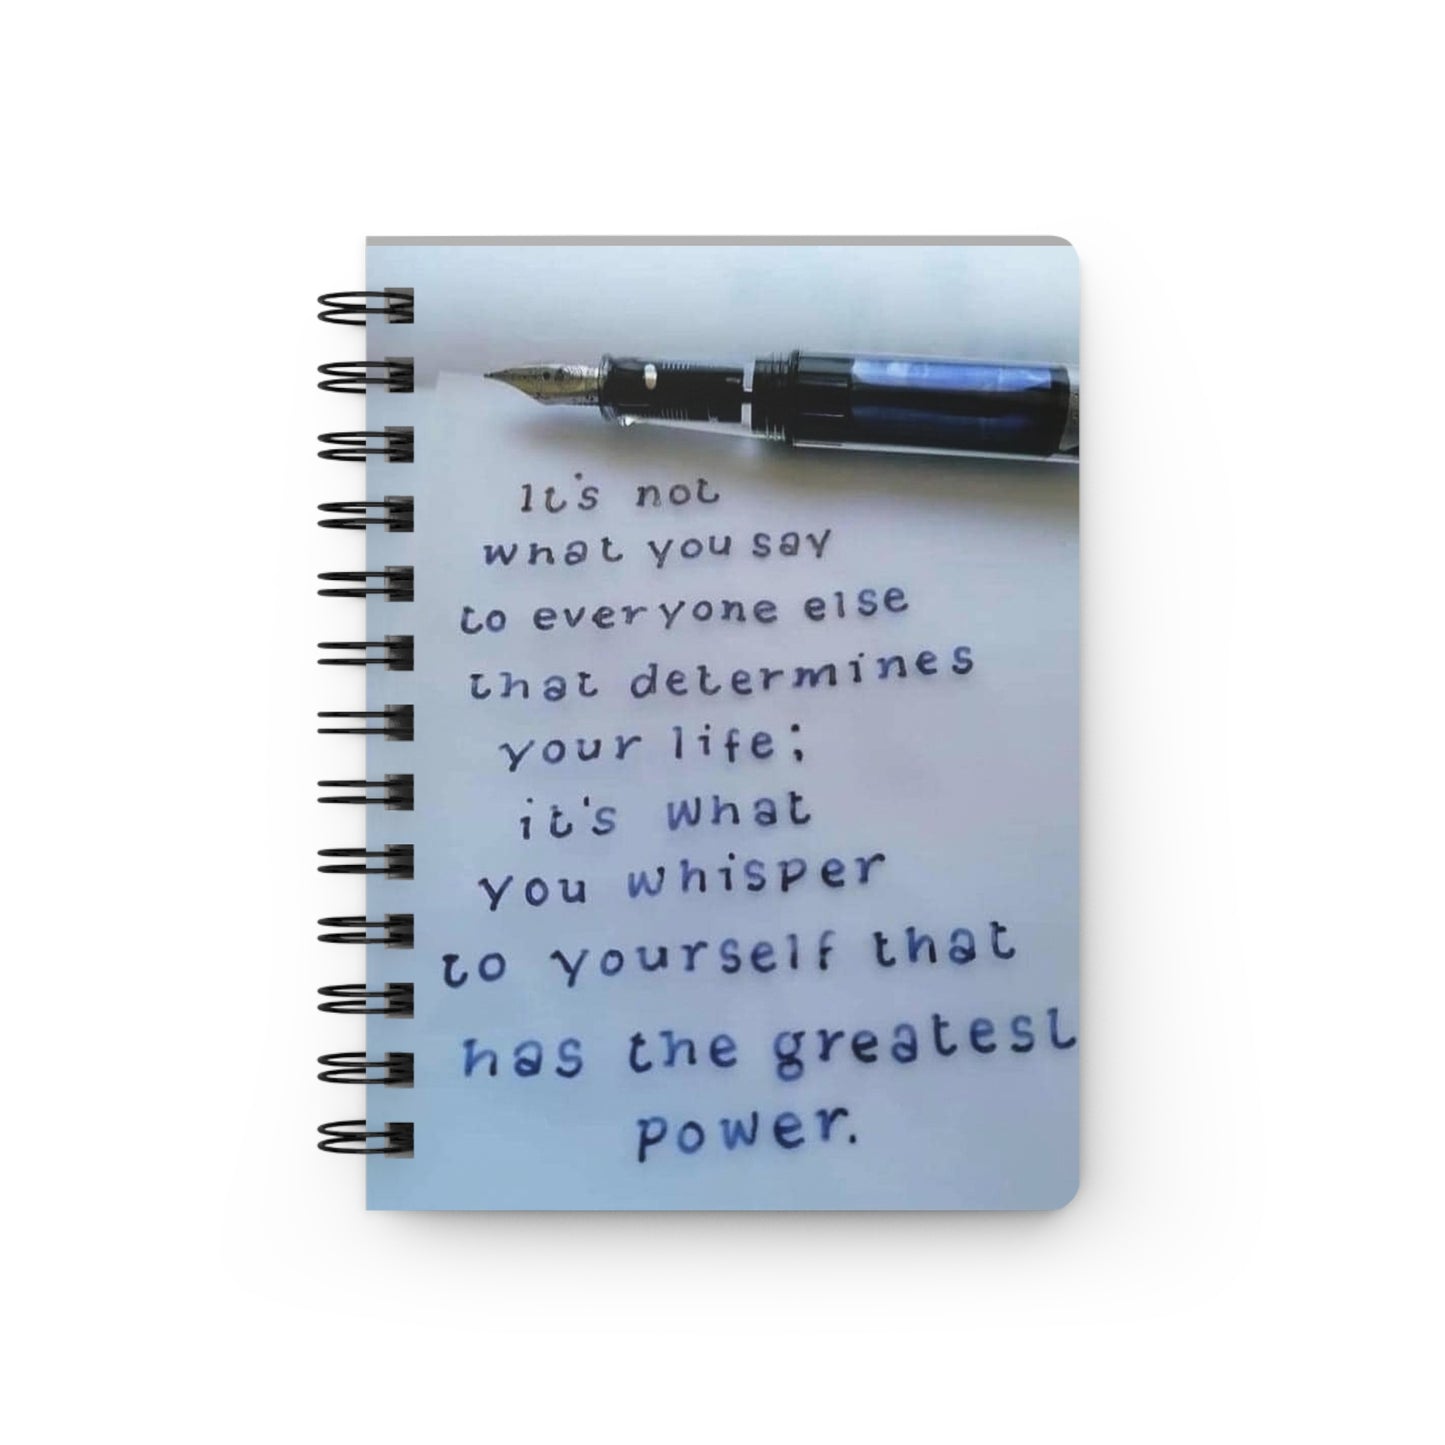 It's not
what you say
to everyone else
that determines
your life;
it's what
you whisper
to yourself that
has the greatest
power.